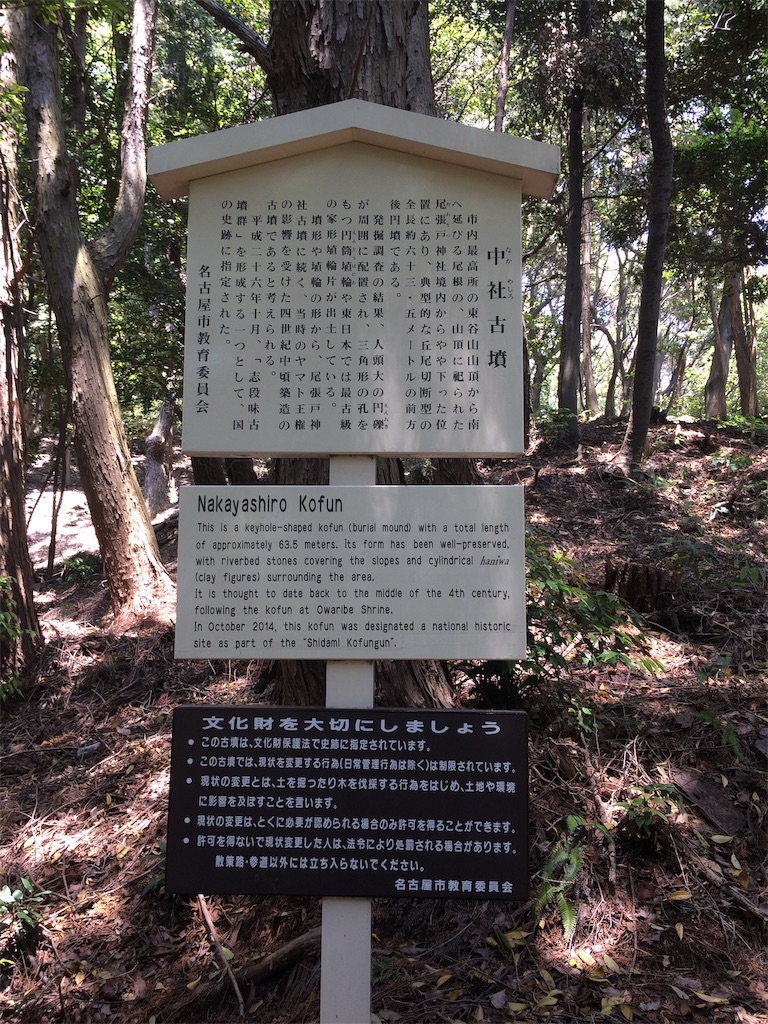 中社古墳
なか やしろ
市内最高所の東谷山山頂から南
へ延びる尾根の、山頂に祀られた
尾張戸神社境内からやや下った位
置にあり、典型的な丘尾切断型の
全長約六十三・五メートルの前方
後円墳である。
発掘調査の結果、人頭大の円礫
が周囲に配置され、三角形の孔を
もつ円筒埴輪や東日本では最古級
の家形埴輪片が出土している。
墳形や埴輪の形から、尾張戸神
社古墳に続く、当時のヤマト王権
の影響を受けた四世紀中頃築造の
古墳であると考えられる。
平成二十六年十月、「志段味古
墳群」を形成する一つとして、国
の史跡に指定された。
名古屋市教育委員会
Nakayashiro Kofun
This is a keyhole-shaped kofun (burial mound) with a total length
of approximately 63.5 meters. Its form has been well-preserved,
with riverbed stones covering the slopes and cylindrical haniwa
(clay figures) surrounding the area.
It is thought to date back to the middle of the 4th century,
following the kofun at Owaribe Shrine.
In October 2014, this kofun was designated a national historic
site as part of the "Shidami Kofungun".
文化財を大切にしましょう
● この古墳は、文化財保護法で史跡に指定されています。
● この古墳では、現状を変更する行為(日常管理行為は除く)は制限されています。
● 現状の変更とは、土を掘ったり木を伐採する行為をはじめ、土地や環境
に影響を及ぼすことを言います。
● 現状の変更は、とくに必要が認められる場合のみ許可を得ることができます。
● 許可を得ないで現状変更した人は、法令により処罰される場合があります。
散策路・参道以外には立ち入らないでください。
名古屋市教育委員会